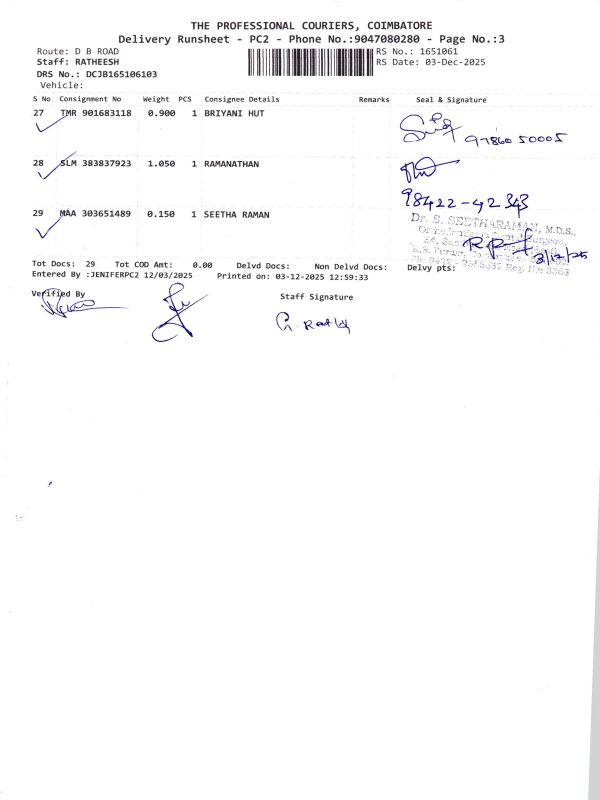 THE PROFESSIONAL COURIERS, COIMBATORE
Delivery Runsheet - PC2 - Phone No.:9047080280 - Page No.:3
Route: D B ROAD RS No.: 1651061
Staff: RATHEESH RS Date: 03-Dec-2025
DRS No.: DCJB165106103
Vehicle:
S No Consignment No Weight PCS Consignee Details Remarks Seal & Signature
27 TMR 901683118 0.900 1 BRIYANI HUT
97860 50005
28 SLM 383837923 1.050 1 RAMANATHAN
98422-42343
29 MAA 303651489 0.150 1 SEETHA RAMAN
Dr. S. SEETHARAMAN, M.D.S.,
3/12/25
Reg. No: 3363
Tot Docs: 29 Tot COD Amt: 0.00 Delvd Docs: Non Delvd Docs: Delvy pts:
Entered By :JENIFERPC2 12/03/2025 Printed on: 03-12-2025 12:59:33
Verified By
Staff Signature